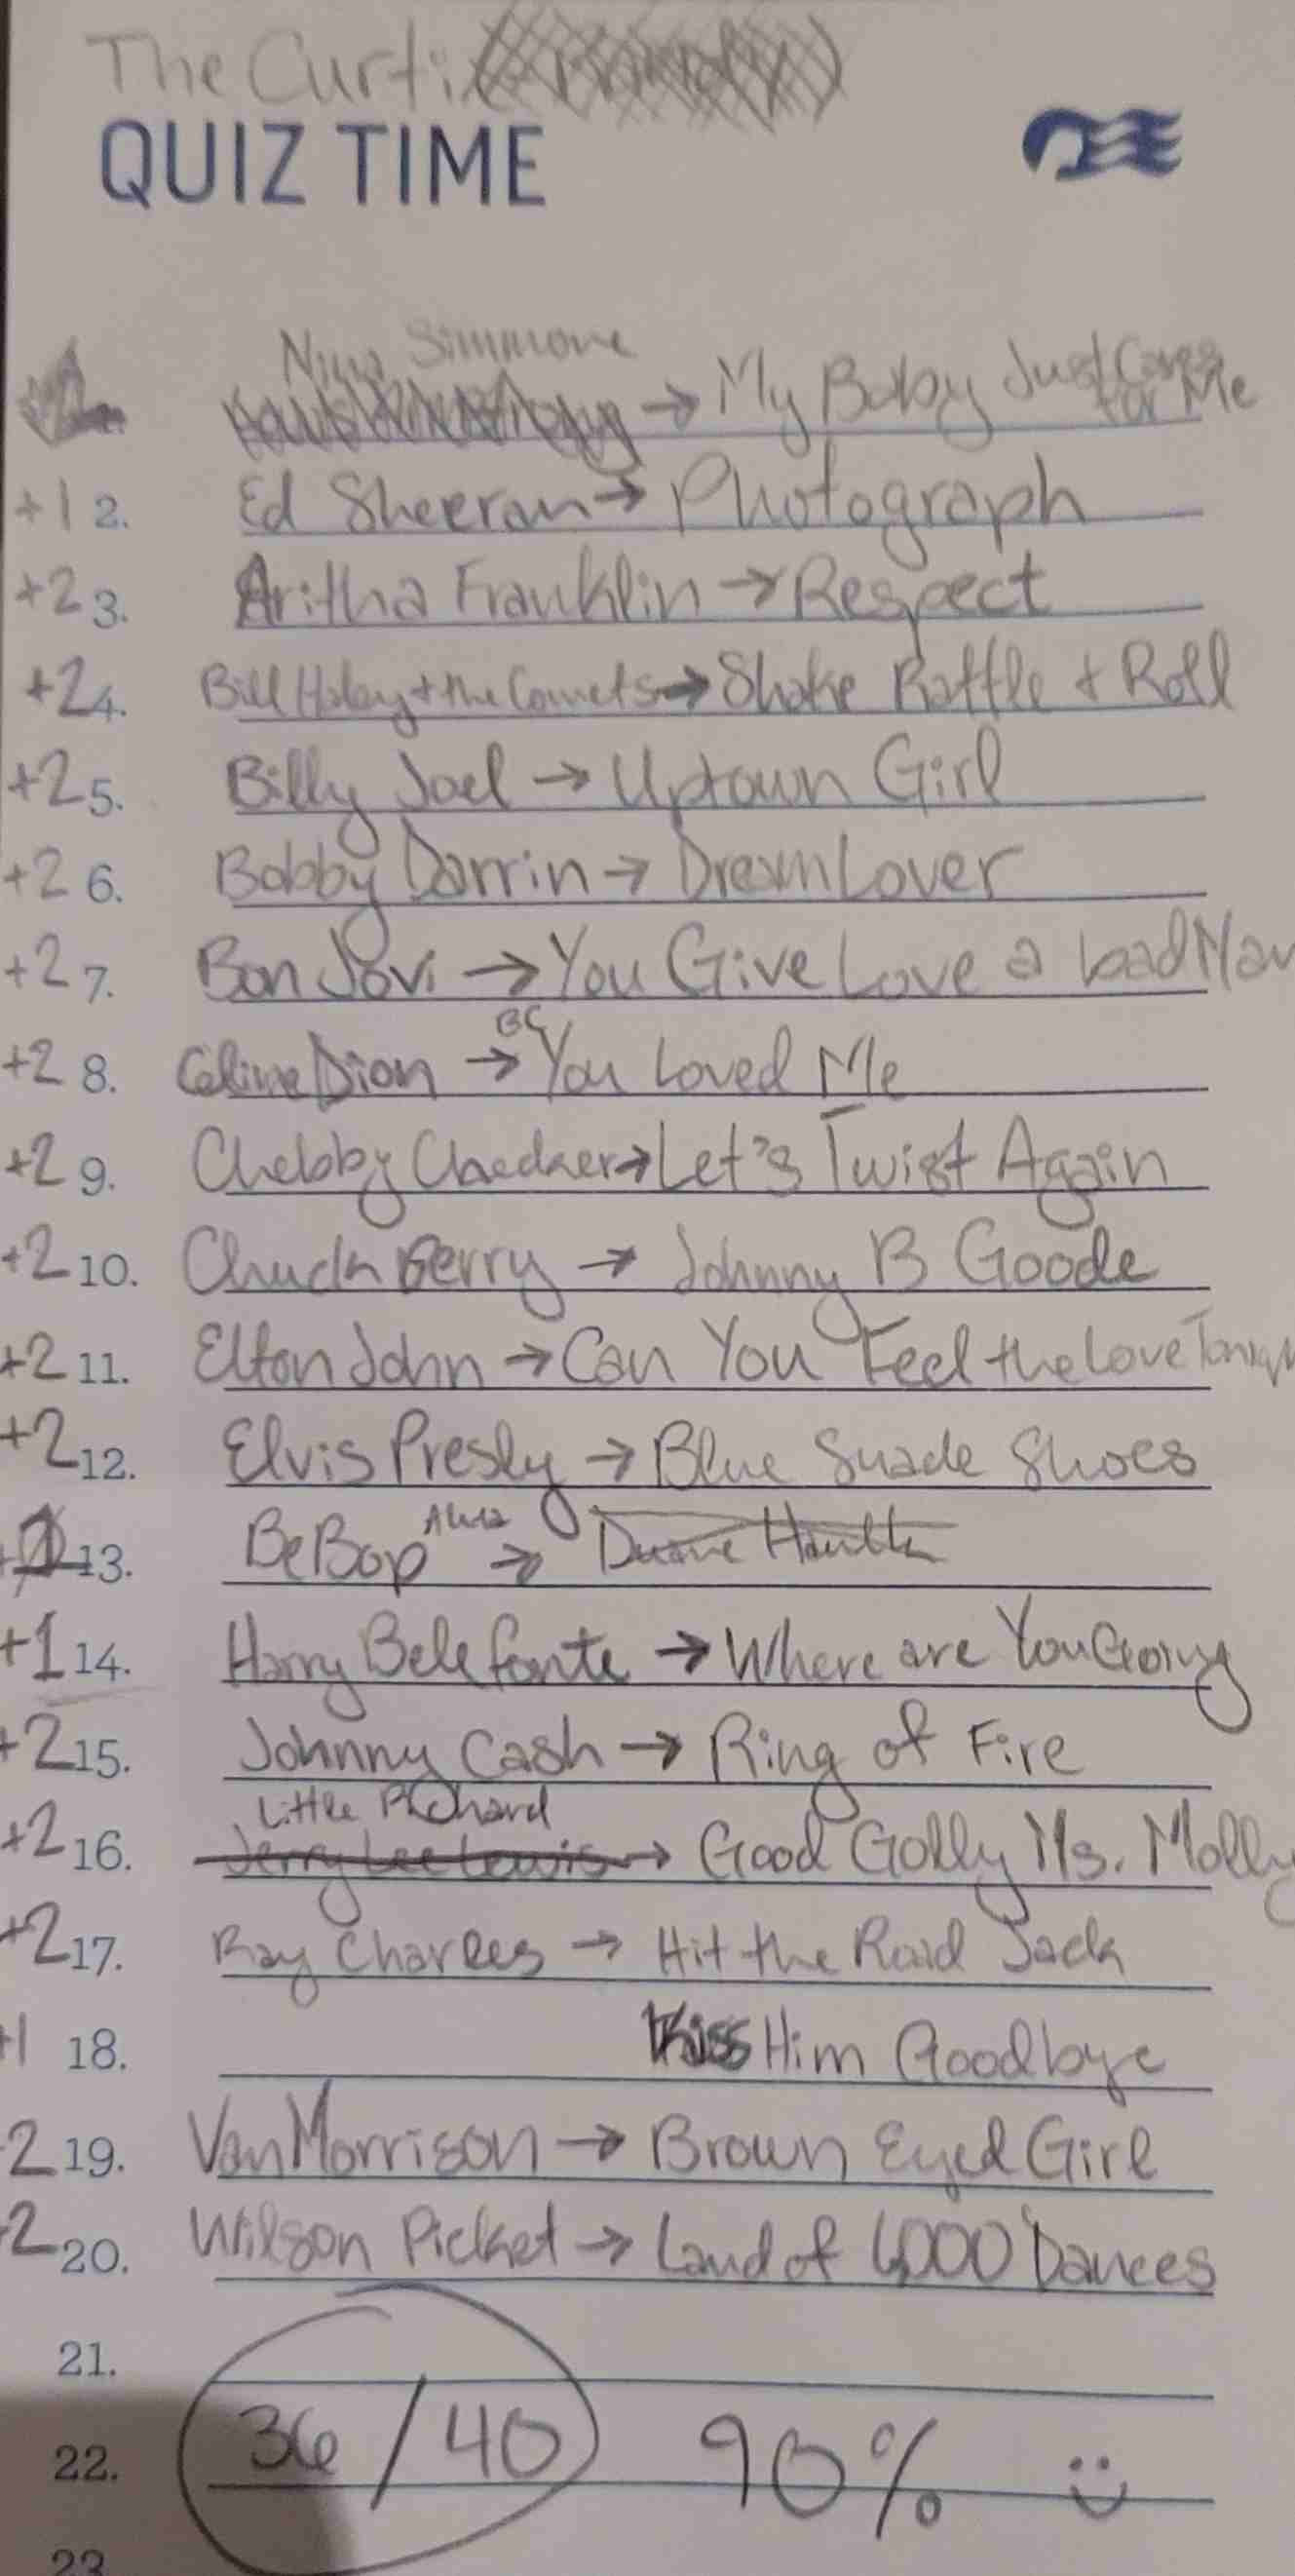 The Curti
QUIZ TIME
Nina Simmone
→ My Baby Just Cares for Me
+1 2. Ed Sheeran → Photograph
+2 3. Aritha Franklin → Respect
+2 4. Bill Haley + the Comets → Shake Rattle + Roll
+2 5. Billy Joel → Uptown Girl
+2 6. Bobby Darrin → Dream Lover
+2 7. Bon Jovi → You Give Love a bad Nam
+2 8. Celine Dion → BC You Loved Me
+2 9. Chebby Checker → Let's Twist Again
+2 10. Chuck Berry → Johnny B Goode
+2 11. Elton John → Can You Feel the Love Tonigh
+2 12. Elvis Presly → Blue Suade Shoes
13. BeBop →
+1 14. Harry Belefonte → Where are You Going
+2 15. Johnny Cash → Ring of Fire
Little Richard
+2 16. Jerry Lee Lewis → Good Golly Ms. Molly
+2 17. Ray Charles → Hit the Road Jack
+1 18. Kiss Him Goodbye
2 19. Van Morrison → Brown Eyed Girl
2 20. Wilson Picket → Land of 1,000 Dances
21.
36/40 90%
22.
23